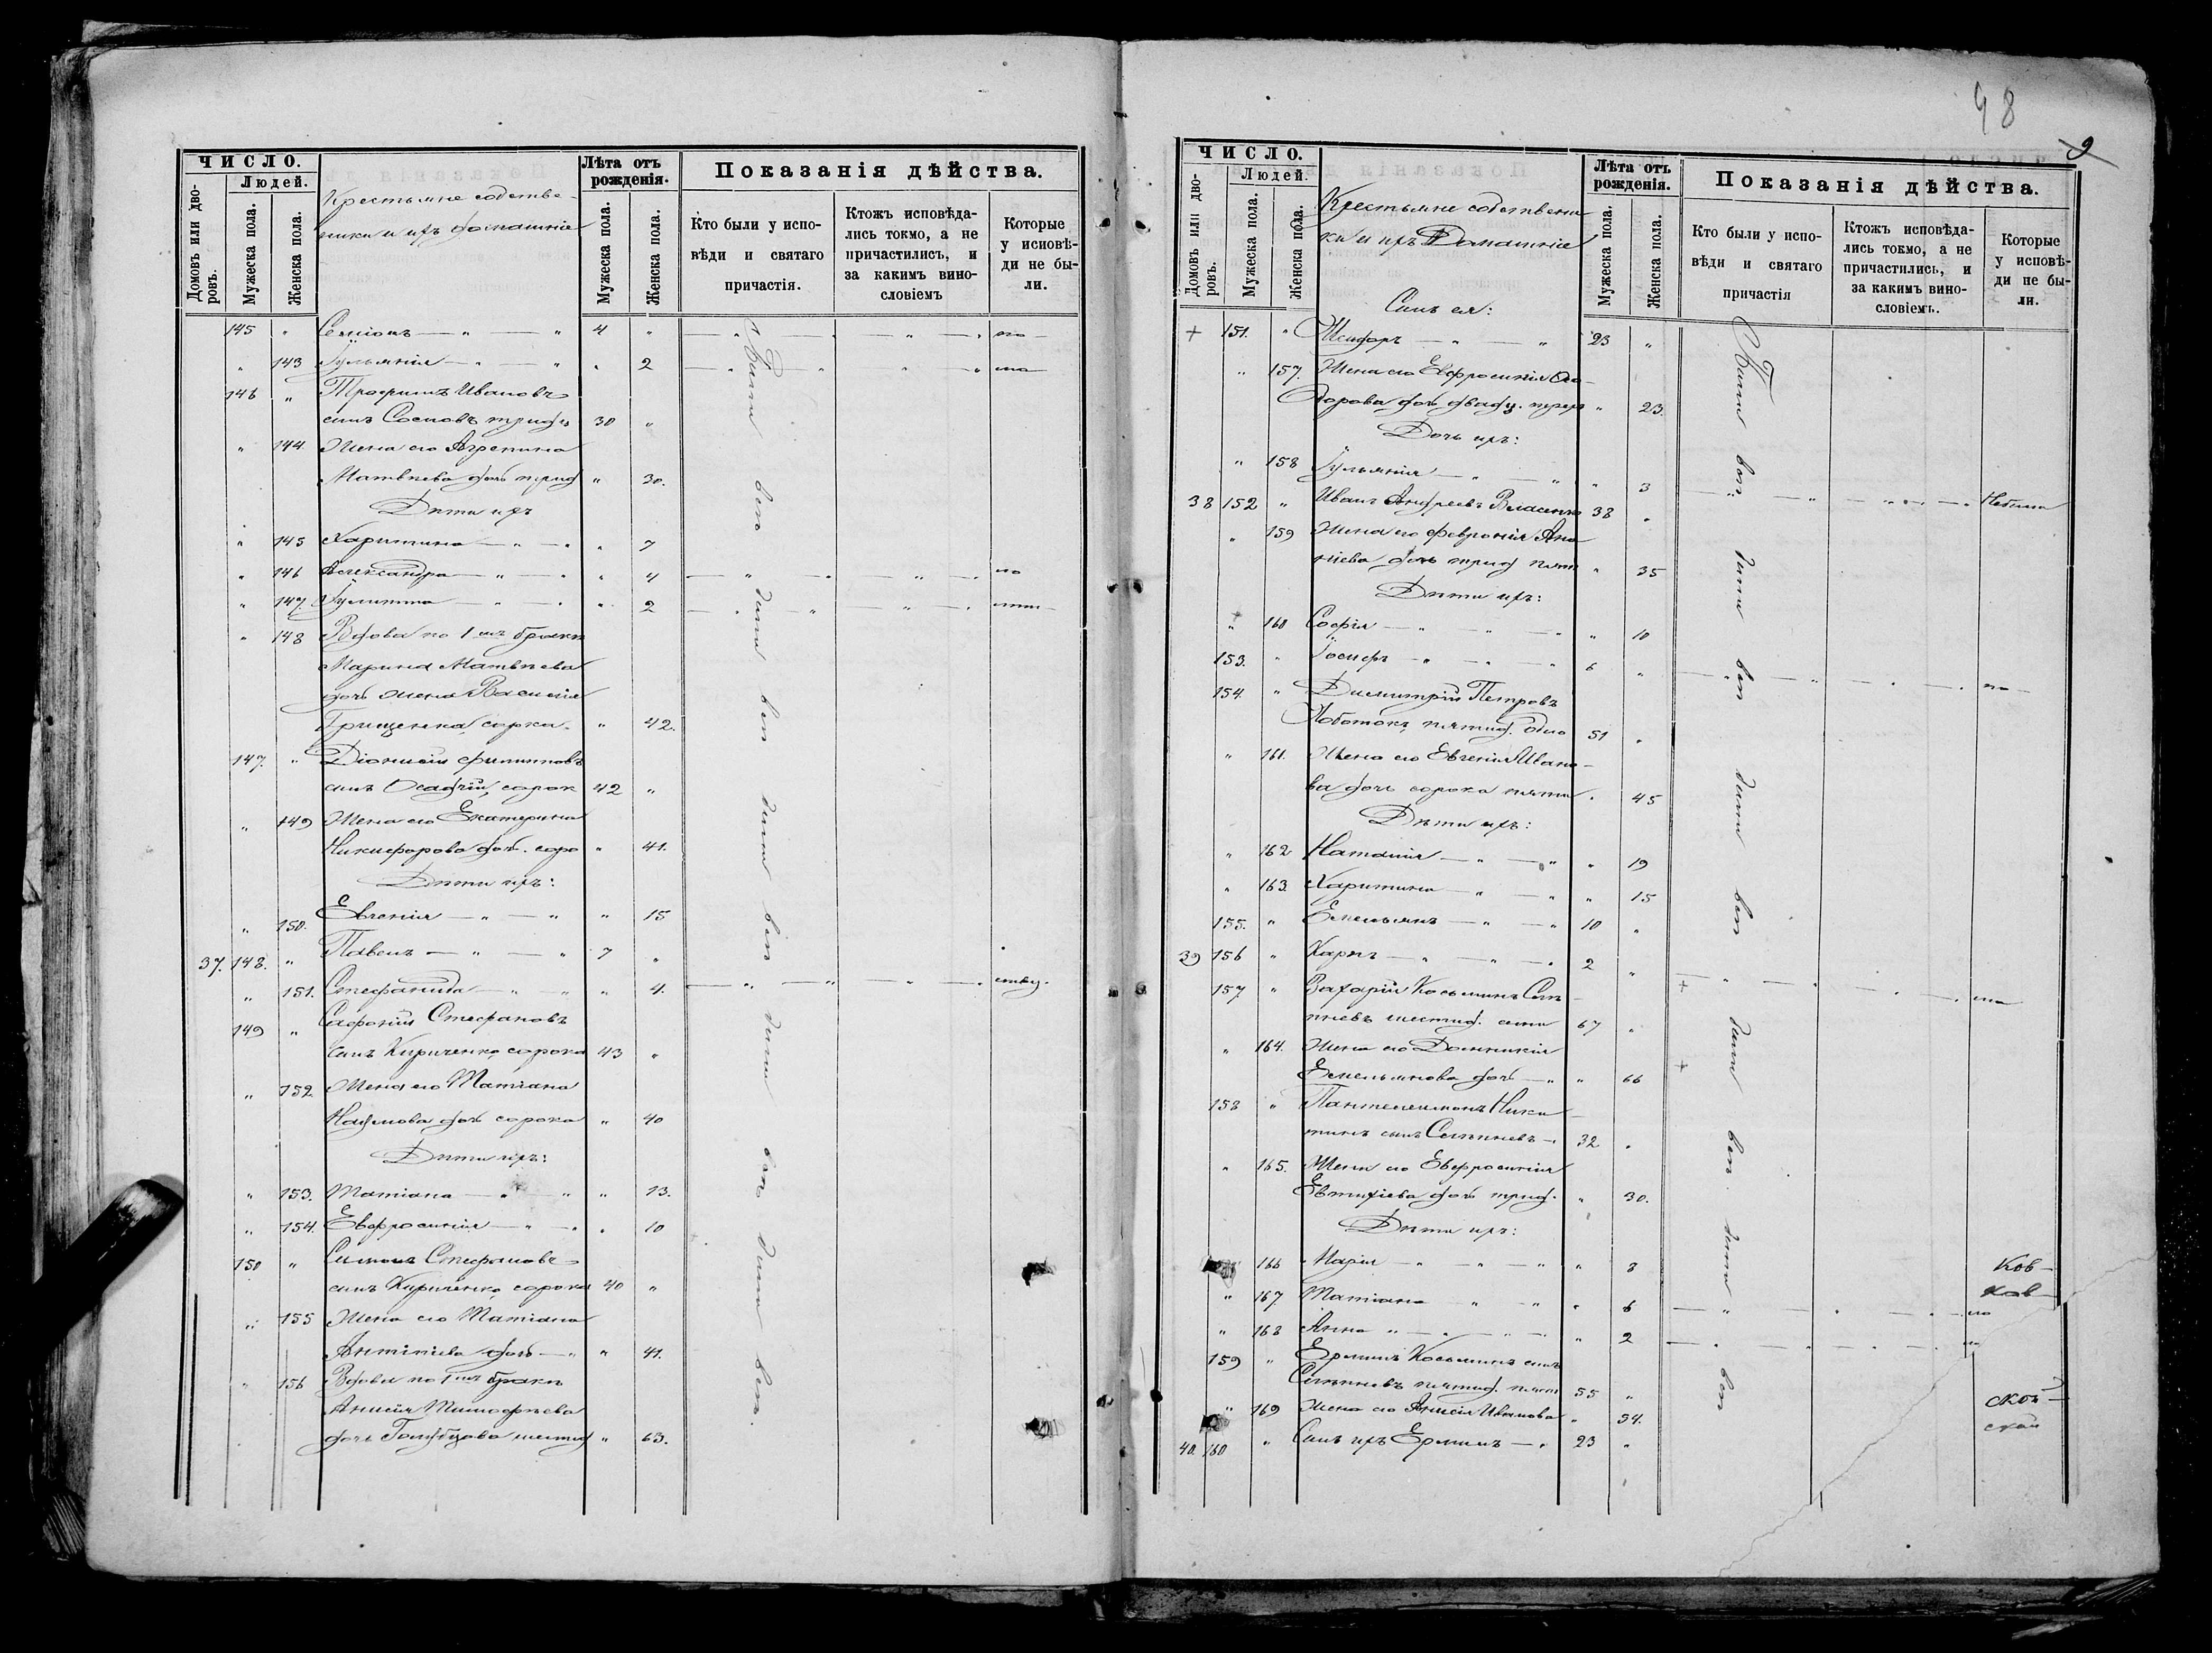 ЧИСЛО.
Людей.
Домовъ или дворовъ.
Мужеска пола.
Женска пола.
Крестьяне собстве-
нники и ихъ домашніе
Лѣта отъ рожденія.
Мужеска пола.
Женска пола.
Показанія дѣйства.
Кто были у исповѣди и святаго причастія.
Ктожъ исповѣдались токмо, а не причастились, и за какимъ винословіемъ
Которые у исповѣди не были.
145 " Симеонъ — " — " 4 "
" 143 Іуліянія — " — " " 2
146 " Трофимъ Ивановъ
сынъ Сосновъ тридц 30 "
" 144 Жена его Агрепина
Матвѣева дочь трид " 30.
Дѣти ихъ
" 145 Харитина — " — " " 7
" 146 Александра — " — " " 4
" 147 Іулитта — " — " " 2
" 148 Вдова по 1мъ бракѣ
Марина Матвѣева
дочь жена Василія
Грищенка, сорка. " 42.
147. " Діонисій Филипповъ
сынъ Осадчій, сорок 42 "
" 149 Жена его Екатерина
Никифорова доч. соро " 41.
Дѣти ихъ:
" 150. Евгенія — " — " " 15
37. 148. " Павелъ — " — " 7 "
" 151. Стефанида — " — " " 4.
149 " Сафоній Стефановъ
сынъ Кириченко сорока 43 "
" 152 Жена его Татіана
Наумова доч сорока " 40
Дѣти ихъ:
" 153. Татіана — " — " " 13.
" 154. Евфросинія — " — " " 10
150 " Симонъ Стефановъ
сынъ Кириченко сорока 40 "
" 155 Жена его Татіана
Антипіева дочь — " " 41.
" 156 Вдова по 1мъ бракѣ
Анисія Тимофѣева
дочь Голубцова шестид " 63.
Были вси
98
9
ЧИСЛО.
Людей.
Домовъ или дворовъ.
Мужеска пола.
Женска пола.
Крестьяне собственни
ки и ихъ Домашніе
Лѣта отъ рожденія.
Мужеска пола.
Женска пола.
Показанія дѣйства.
Кто были у исповѣди и святаго причастія
Ктожъ исповѣдались токмо, а не причастились, и за какимъ винословіемъ.
Которые у исповѣди не были.
Сынъ ея:
+ 151. " — " — " 23 "
" 157. Жена его Евфросинія Ѳео-
дорова доч двадц. трех " 23.
Дочь ихъ:
" 158 Іуліянія — " — " " 3
38 152 " Иванъ Андреевъ Власенко 38 "
" 159 Жена его Февронія Ана
ніева дочь трид пят " 35
Дѣти ихъ:
" 160 Софія — " — " " 10
153. " Іосифъ — " — " 6 "
154. " Димитрій Петровъ
пятид. одно 51 "
" 161. Жена его Евгенія Ивано-
ва доч сорока пяти " 45
Дѣти ихъ:
" 162 Наталія — " — " " 19
" 163. Харитина — " — " " 15
155. " Емельянъ — " — " 10 "
39 156 " Карпъ — " — " 2 "
157 " Захарій Косьминъ
шестид. семи 67 "
" 164. Жена его Домникія
Емельянова дочь — " " 66
158 " Пантелеимонъ Ники-
тинъ сынъ 32 "
" 165. Жена его Евфросинія
Евтихіева доч трид. " 30.
Дѣти ихъ:
" 166 Марія — " — " " 8
" 167. Татіана — " — " " 6
" 168 Анна " — " — " " 2
159 " Ермилъ Косьминъ сынъ
пятид. пяти 55 "
" 169 Жена его Анисія Иванова " 54.
40 160 " Сынъ ихъ Ермилъ — " 23 "
Были вси